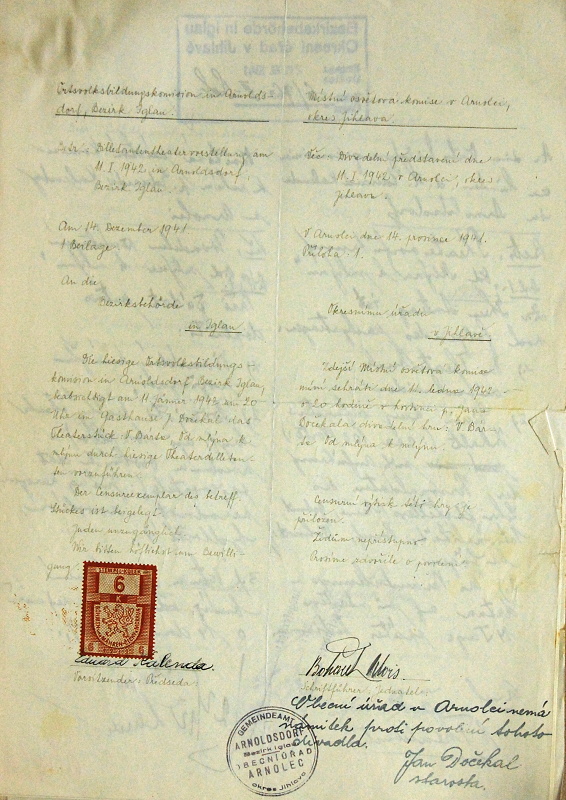 Bezirksbehörde in Iglau
Okresní úřad v Jihlavě
Ortsvolksbildungskomission in Arnolds-
dorf, Bezirk Iglau.
Betr.: Dilletantentheatervorstellung am
11. I. 1942 in Arnoldsdorf,
Bezirk Iglau.
Am 14. Dezember 1941
1 Beilage
An die
Bezirksbehörde
in Iglau
Die hiesige Ortsvolksbildungs-
komission in Arnoldsdorf, Bezirk Iglau,
beabsichtigt am 11 Jänner 1942 um 20
Uhr im Gasthause J. Dočekal das
Theaterstück V. Bárta: Od mlýna k
mlýnu durch hiesige Theaterdilletan-
ten voranführen.
Der Censurexemplar des betreff.
Stückes ist beigelegt.
Juden unzugänglich.
Wir bitten höflichst um Bewilli-
gung
STEMPEL-KOLEK
6
K
6 6
Eduard Kalenda.
Vorsitzender: Předseda
Místní osvětová komise v Arnolci,
okres Jihlava.
Věc: Divadelní představení dne
11. I. 1942 v Arnolci, okres
Jihlava.
V Arnolci dne 14. prosince 1941.
Příloha: 1.
Okresnímu úřadu
v Jihlavě
Zdejší Místní osvětová komise
míní sehráti dne 11. ledna 1942
v 20 hodině v hostinci p. Jana
Dočekala divadelní hru: V. Bár-
ta: Od mlýna k mlýnu.
Censurní výtisk této hry je
přiložen.
Židům nepřístupno
Prosíme zdvořile o povolení
Schriftführer: Jednatel
Obecní úřad v Arnolci nemá
námitek proti povolení tohoto
divadla.
Jan Dočekal
starosta.
GEMEINDEAMT
ARNOLDSDORF
Bezirk Iglau
OBECNÍ ÚŘAD
ARNOLEC
okres Jihlava